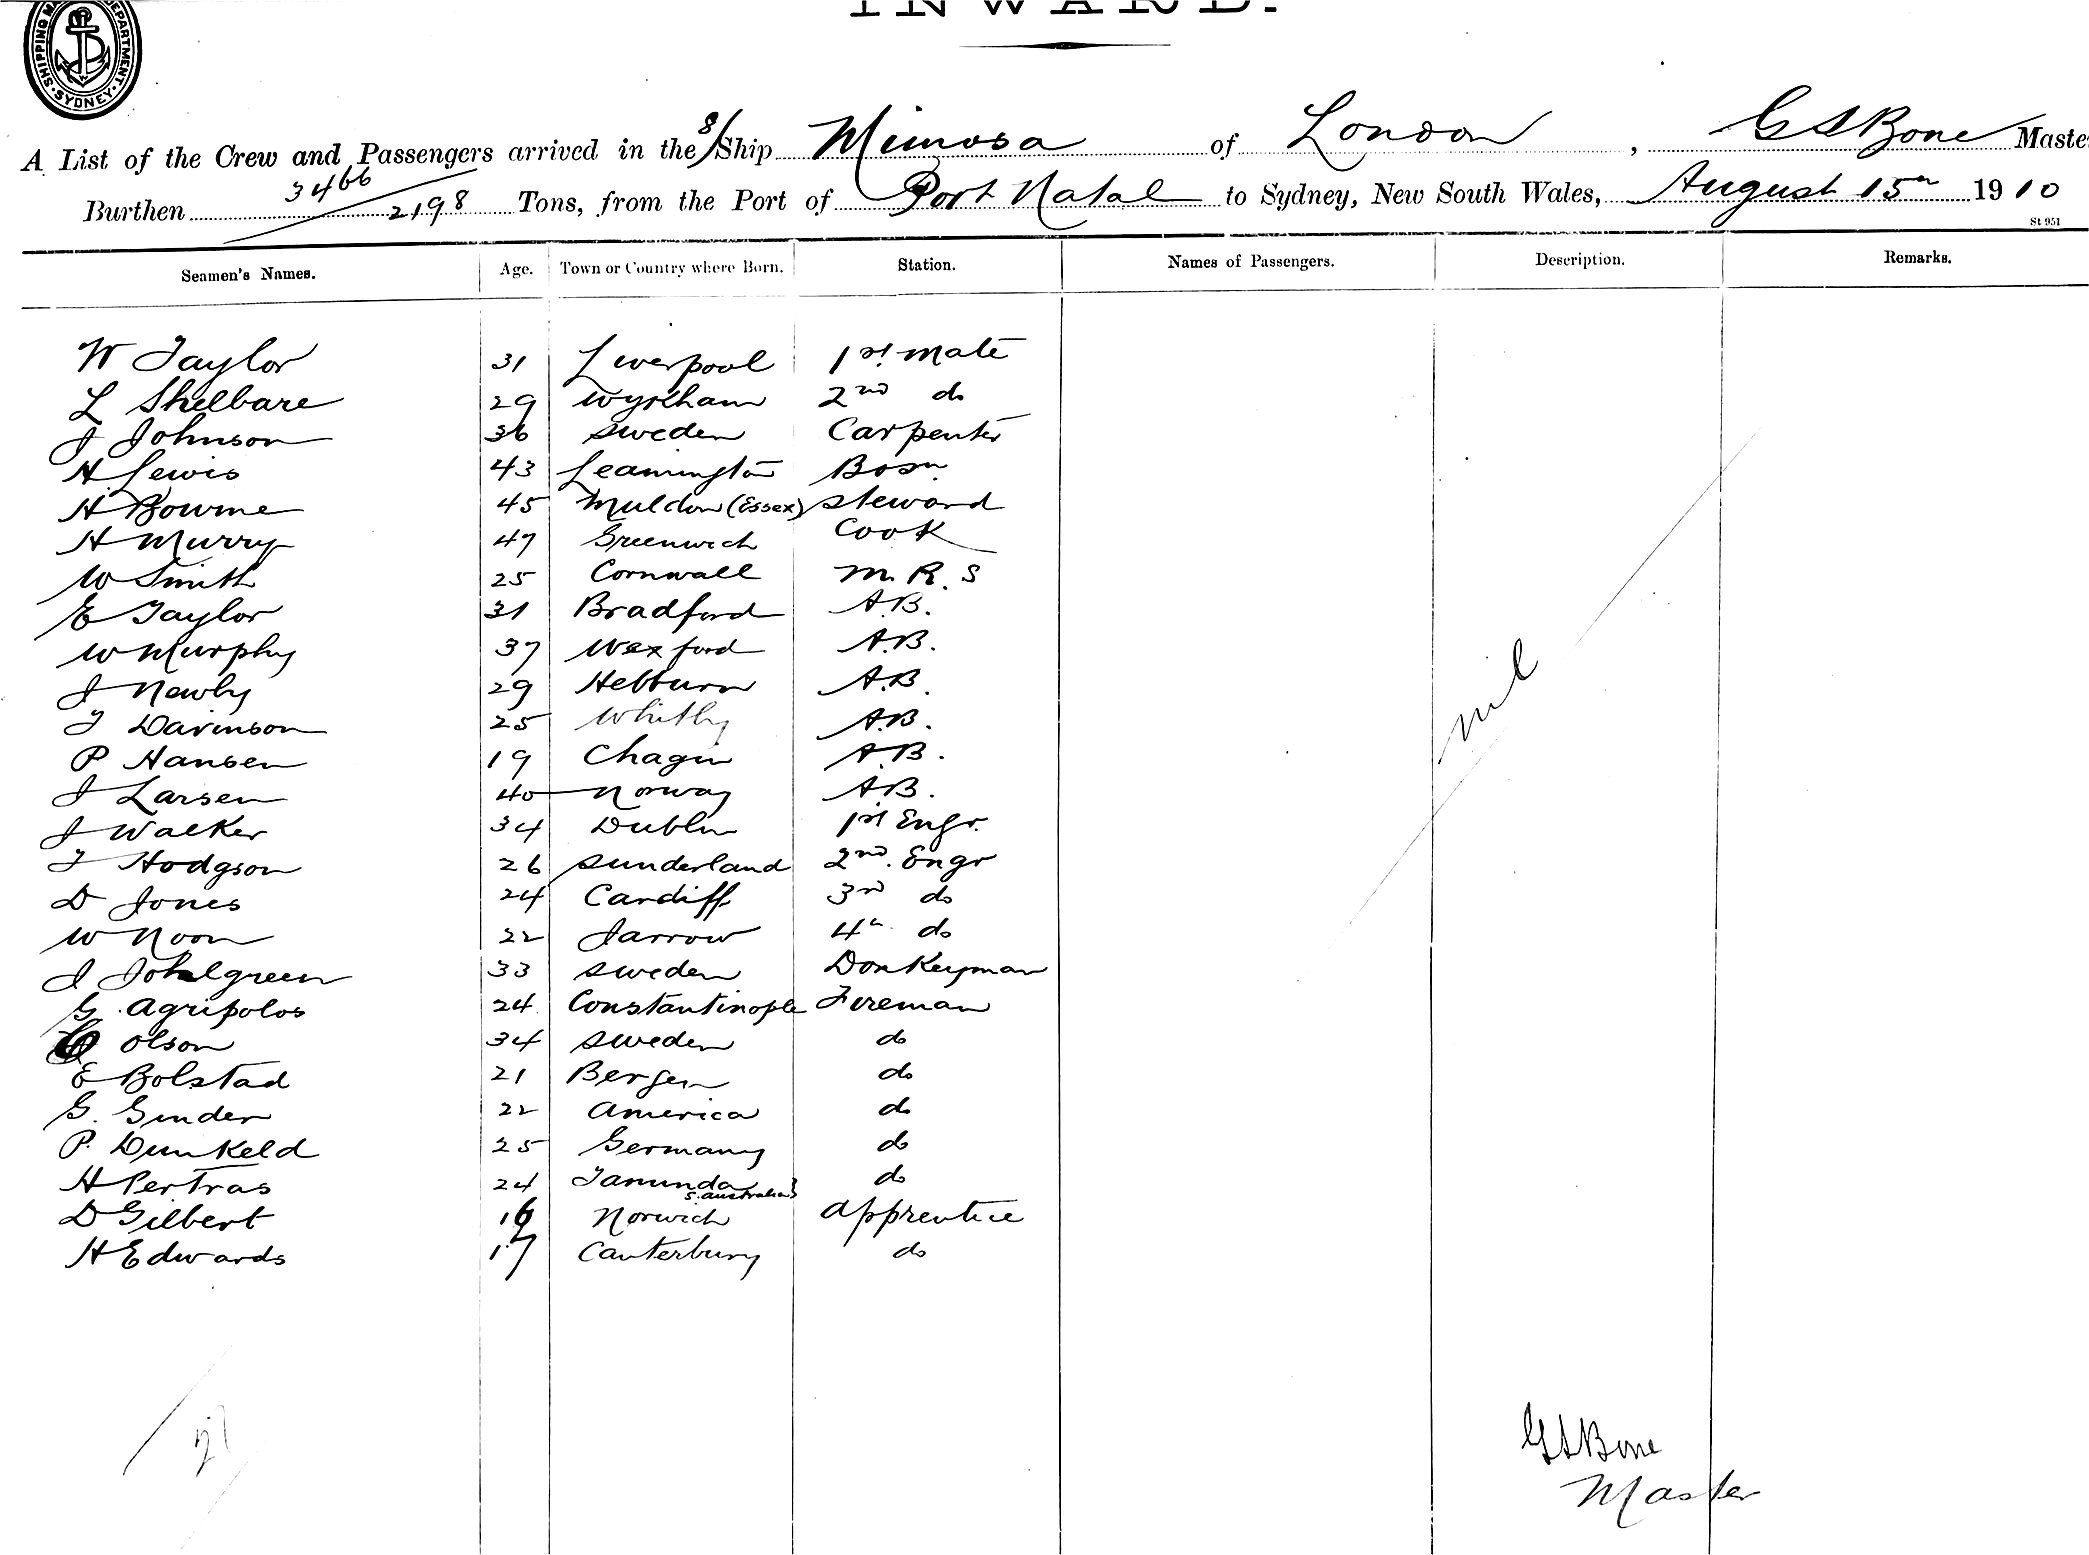 INWARD.
SHIPPING DEPARTMENT SYDNEY
A List of the Crew and Passengers arrived in the S/Ship Mimosa of London, G S Bone Maste
Burthen 3466 / 2198 Tons, from the Port of Port Natal to Sydney, New South Wales, August 15th 1910
St 951
Seamen's Names. Age. Town or Country where Born. Station. Names of Passengers. Description. Remarks.
W Taylor 31 Liverpool 1st mate
L Shelbare 29 Wyreham 2nd do
J Johnson 36 Sweden Carpenter
H Lewis 43 Leamington Bosn
H Bourne 45 Muldon (Essex) Steward
H Murry 47 Greenwich Cook
W Smith 25 Cornwall M.R.S
E Taylor 31 Bradford A.B.
W Murphy 37 Wexford A.B.
J Newby 29 Hebburn A.B.
T Davinson 25 Whitby A.B.
P Hansen 19 Chagin A.B.
J Larsen 40 Norway A.B.
J Walker 34 Dublin 1st Engr.
T Hodgson 26 Sunderland 2nd. Engr
D Jones 24 Cardiff 3rd do
W Noon 22 Jarrow 4th do
J Johlgreen 33 Sweden Donkeyman
G. Agripolos 24 Constantinople Fireman
Olson 34 Sweden do
E Bolstad 21 Bergen do
G. Ginder 22 America do
P. Dunkeld 25 Germany do
H Pertras 24 Tanunda S. Australia do
D Gilbert 16 Norwich apprentice
H Edwards 17 Canterbury do
nil
G S Bone
Master